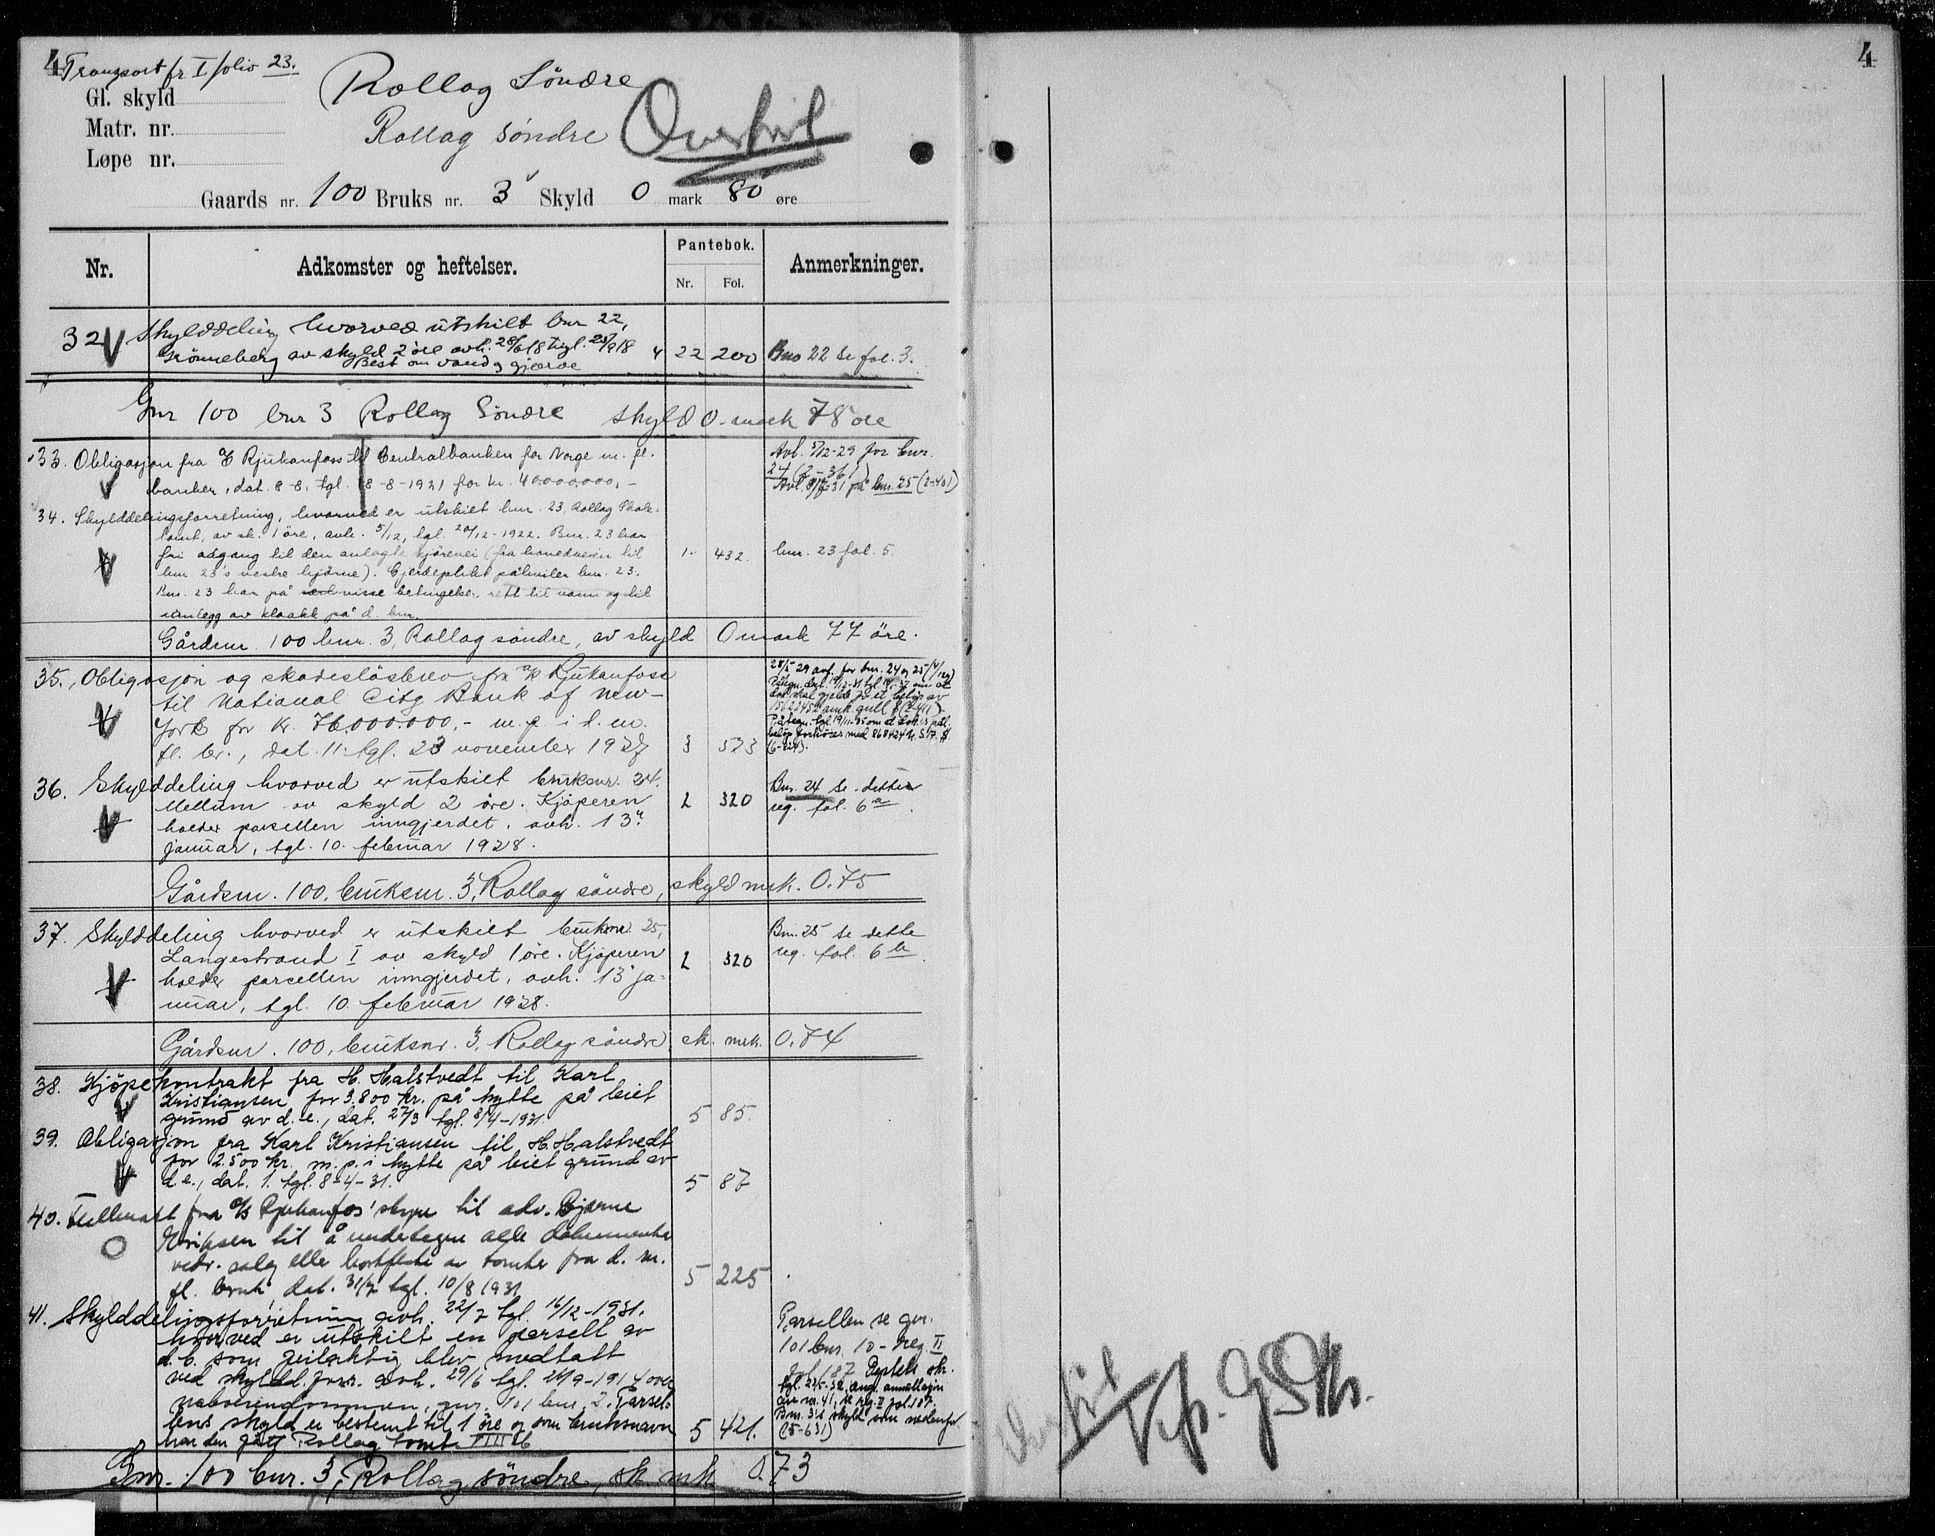 4 Transport fr I folio 23.
Gl. skyld
Matr. nr.
Løpe nr.
Rollag Söndre
Rollag söndre Overfört
Gaards nr. 100 Bruks nr. 3 Skyld 0 mark 80 øre
Nr. Adkomster og heftelser. Pantebok. Anmerkninger.
Nr. Fol.
32 Skylddeling hvorved utskilt bnr 22,
Grönneberg av skyld 2 öre avh. 28/6 18 tgl. 25/9 18 4 22 200 Bno 22 se fol. 3.
Best om vand og gjærde
Gnr 100 bnr 3 Rollag Söndre skyld 0 mark 78 öre
33. Obligasjon fra A/S Rjukanfoss til Centralbanken for Norge m. fl.
banker, dat. 8-8, tgl. 18-8-1921 for kr. 40.000.000,-
Avl. 5/12-29 for bnr.
24 (2-361)
Avl. 31 på bnr. 25 (2-401)
34. Skylddelingsforretning, hvorved er utskilt bnr. 23, Rollag Skole-
tomt, av sk. 1 öre, avh. 5/12, tgl. 20/12-1922. Bnr. 23 har
fri adgang til den anlagte kjörevei (fra hovedveien til 1. 432. bnr. 23 fol. 5.
bnr. 23's vestre hjörne). Gjerdeplikt påhviler bnr. 23.
Bnr. 23 har på visse betingelser rett til vann og til
umlegg av kloakk på d. bnr.
Gårdsnr 100 bnr. 3, Rollag söndre, av skyld 0 mark 77 öre.
35. Obligasjon og skadeslösbrev fra A/S Rjukanfoss
til National City Bank of New-
York for kr. 76.000.000,- m. p. i d. m.
fl. br., dat. 11. tgl. 23 november 1927 3 573
28/5 29 avf. for bnr. 24 og 25 (4/129)
36. Skylddeling hvorved er utskilt bruksnr. 24.
Mellum av skyld 2 öre. Kjöperen 2 320
holder parsellen inngjerdet, avh. 13.
januar, tgl. 10. februar 1928.
Bnr. 24 se dette
reg. fol. 6 a.
Gårdsnr. 100, bruksnr. 3, Rollag söndre, skyld mrk. 0.75
37. Skylddeling hvorved er utskilt bruksnr. 25,
Langestrand I av skyld 1 öre. Kjöperen 2 320
holder parsellen inngjerdet, avh. 13 ja-
nuar, tgl. 10 februar 1928.
Bnr. 25 se dette
reg. fol. 6 b.
Gårdsnr. 100, bruksnr. 3, Rollag söndre, sk. mrk. 0.74
38. Kjöpekontrakt fra H. Halstvedt til Karl
Kristiansen for 3.800 kr. på hytte på leiet
grund av d. e., dat. 27/3 tgl. 8/4-1931 5 85.
39. Obligasjon fra Karl Kristiansen til H. Halstvedt
for 2.500 kr. m. p. i hytte på leiet grund av
d. e., dat. 1. tgl. 8-4-31. 5 87
40. Fullmakt fra A/S Rjukanfos' styre til adv. Bjarne
Eriksen til å undertegne alle dokumenter
vedr. salg eller bortfeste av tomter fra d. m.
fl. bruk, dat. 31/7 tgl. 10/8 1931 5 225
41. Skylddelingsforretning avh. 22/7 tgl. 16/12-1931.
hvorved er utskilt en parsell av
d. b. som feilaktig blev medtatt
ved skyldd. forr. avh. 29/6 tgl. 21/9-1914 over
naboeiendommen, gnr. 101 bnr. 2. Parsel-
lens skyld er bestemt til 1 öre og som bruksnavn
har den fått Rollag tomt 5 421.
Parsellen se gnr.
101 bnr. 10 - reg II
fol 187
Bnr. 3's skyld som nedenfor
(5-631)
Gnr. 100 bnr. 3, Rollag söndre, sk mrk 0.73
4
Overfört